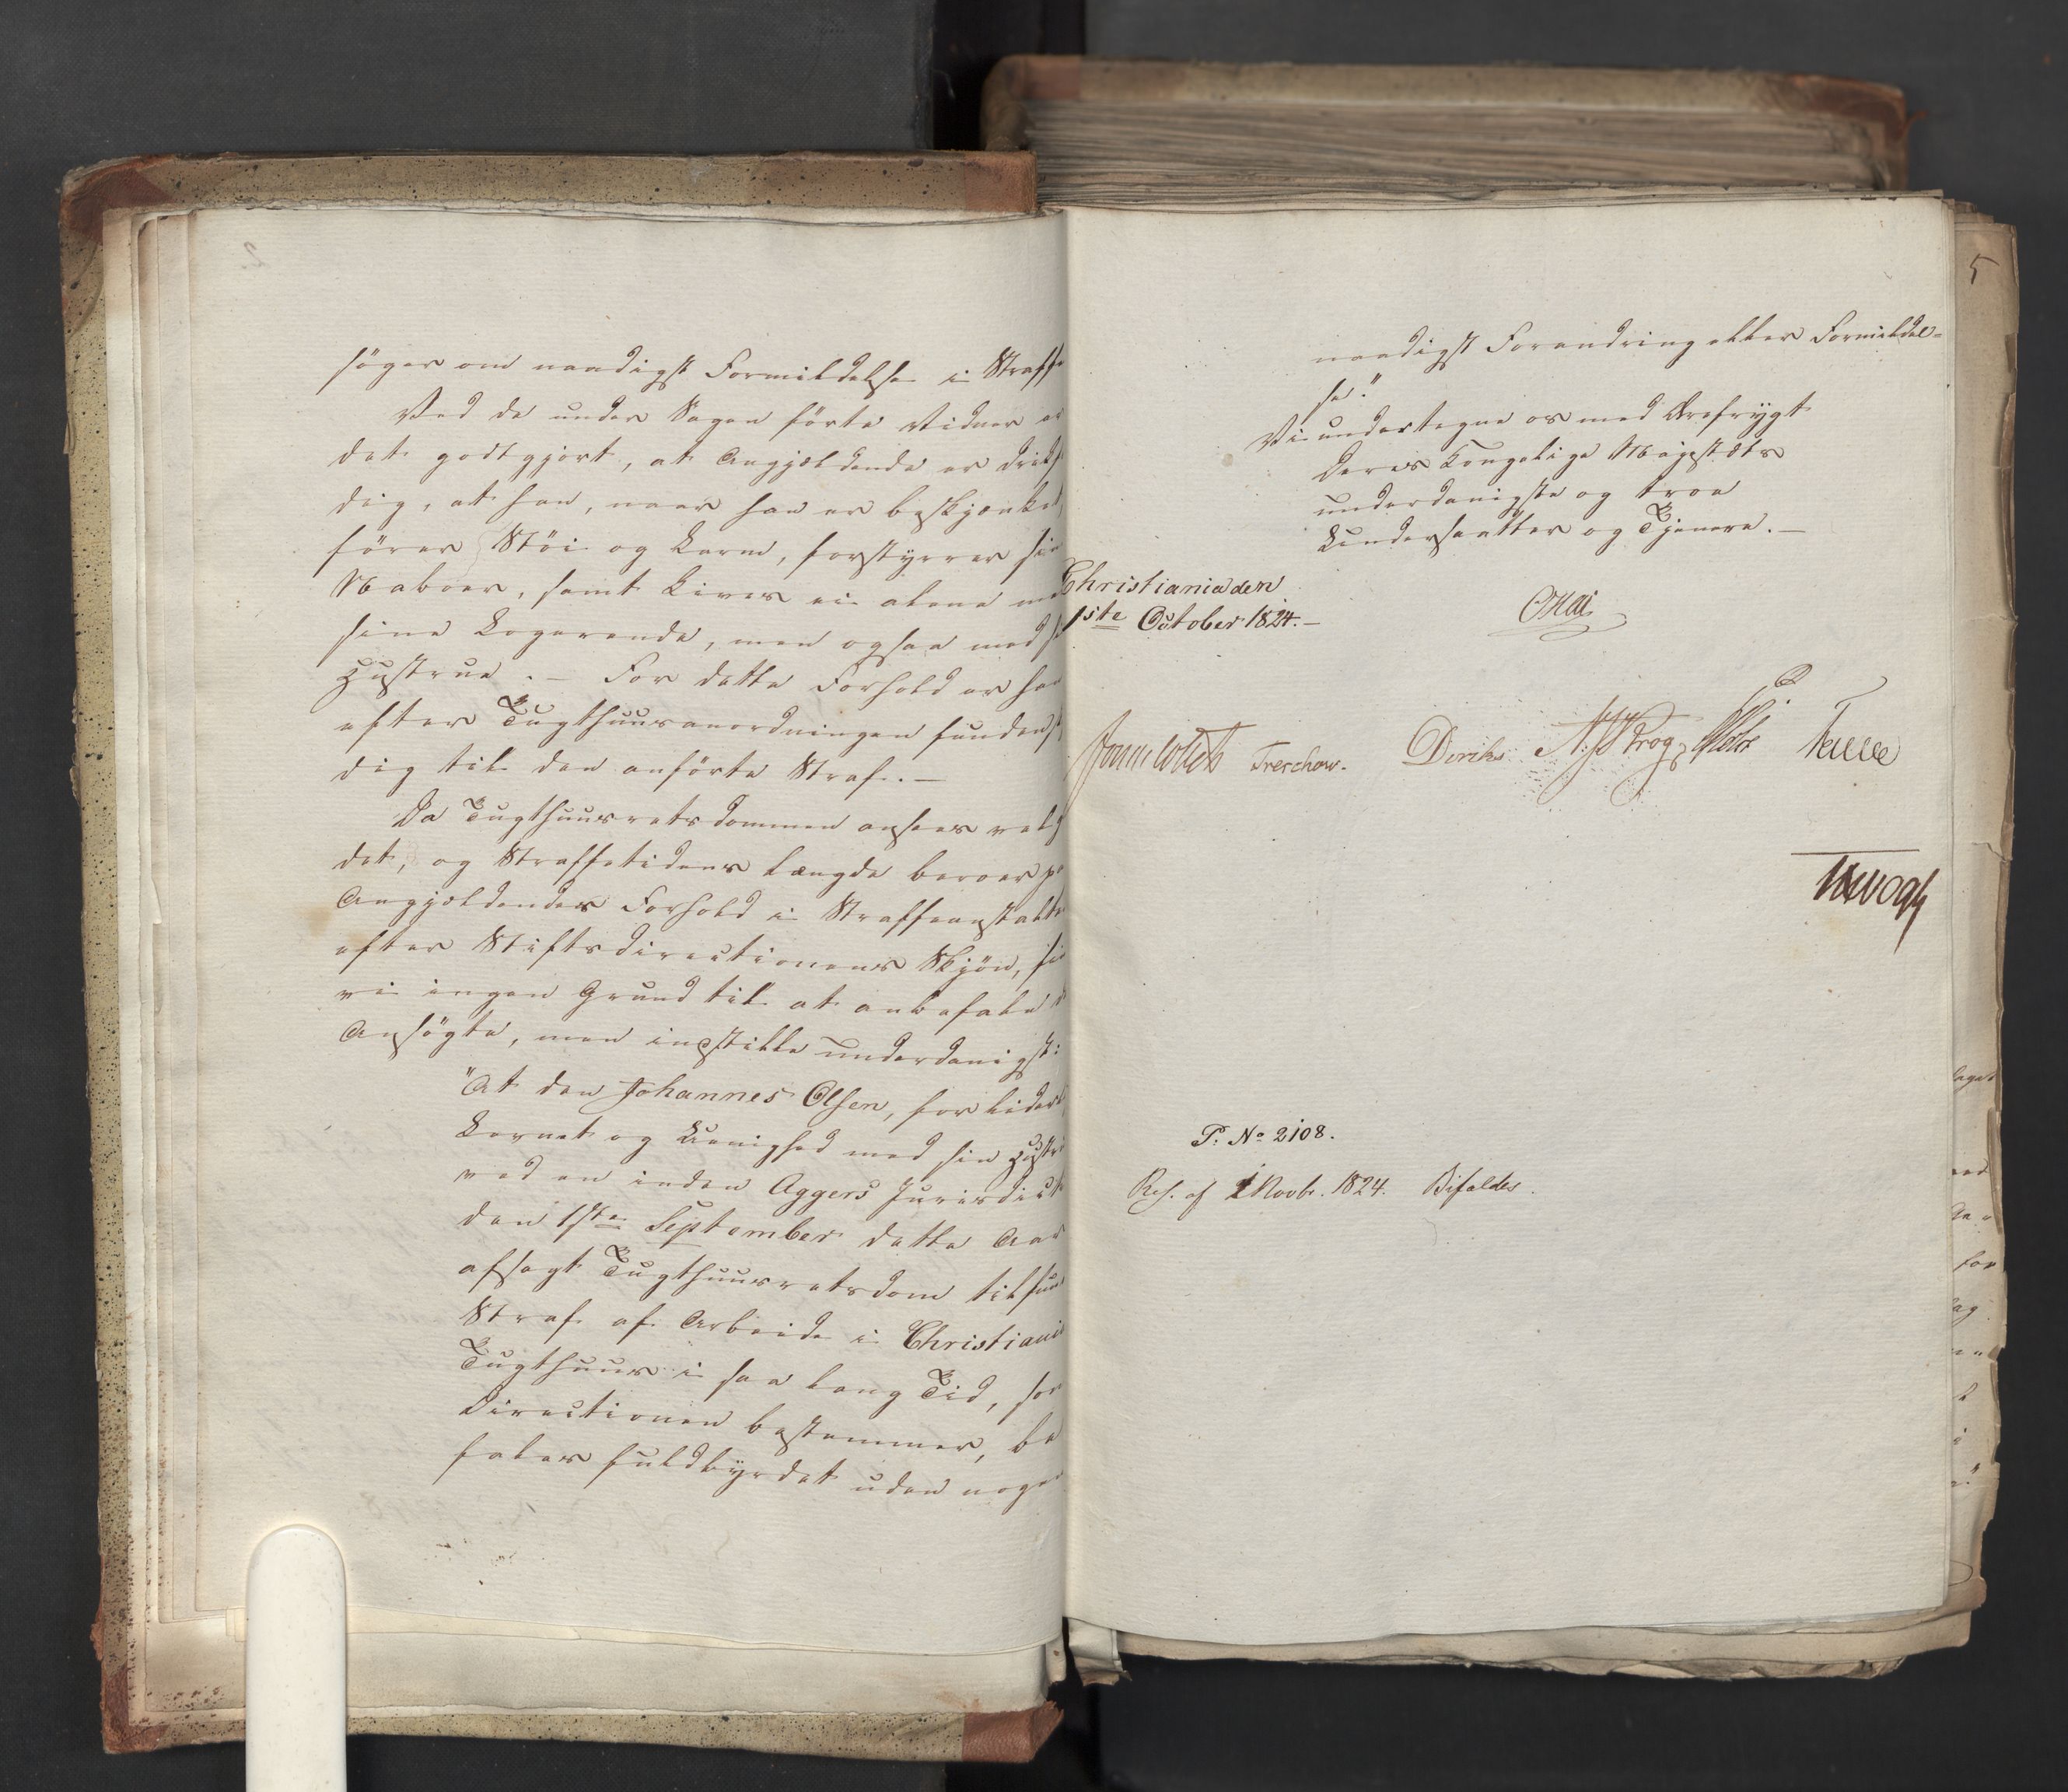 söger om naadigst Formildelse i Straffe
Ved de under Sagen förte Vidner er
det godtgjort, at Angjældende er drik
dig, at han, naar han er beskjænket,
förer Stöi og Larm, forstyrrer sin
Naboer, samt Liver ei alene me
sine Logerende, men ogsaa med s
Hustrue. – For dette Forhold er han
efter Tugthuusanordningen funden s
dig til den anförte Straf. –
Da Tugthuusretsdommen ansees velg
det, og Straffetidens Længde beroer pa
Angjældendes Forhold i Straffeanstalte
efter Stiftsdirectionens Skjön, fin
vi ingen Grund til at anbefale d
Ansögte, men indstille underdanigst:
"At den Johannes Olsen, for liderl
Levnet og Uenighed med sin Hustr
ved en inden Aggers Jurisdict
den 1ste September dette Aar
afsagt Tugthuusretsdom tilfun
Straf af Arbeide i Christiania
Tugthuus i saa lang Tid, som
Directionen bestemmer, be
fales fuldbyrdet uden nogen
5
naadigst Forandring eller Formildel=
se."
Vi undertegne os med Ærefrygt
Deres Kongelige Majestæts
underdanigste og troe
Undersaatter og Tjenere. –
Christiania den
1ste October 1824. –
Treschow. Diriks Krog
P. No 2108.
Res. af 1 Novbr. 1824. Bifaldes.